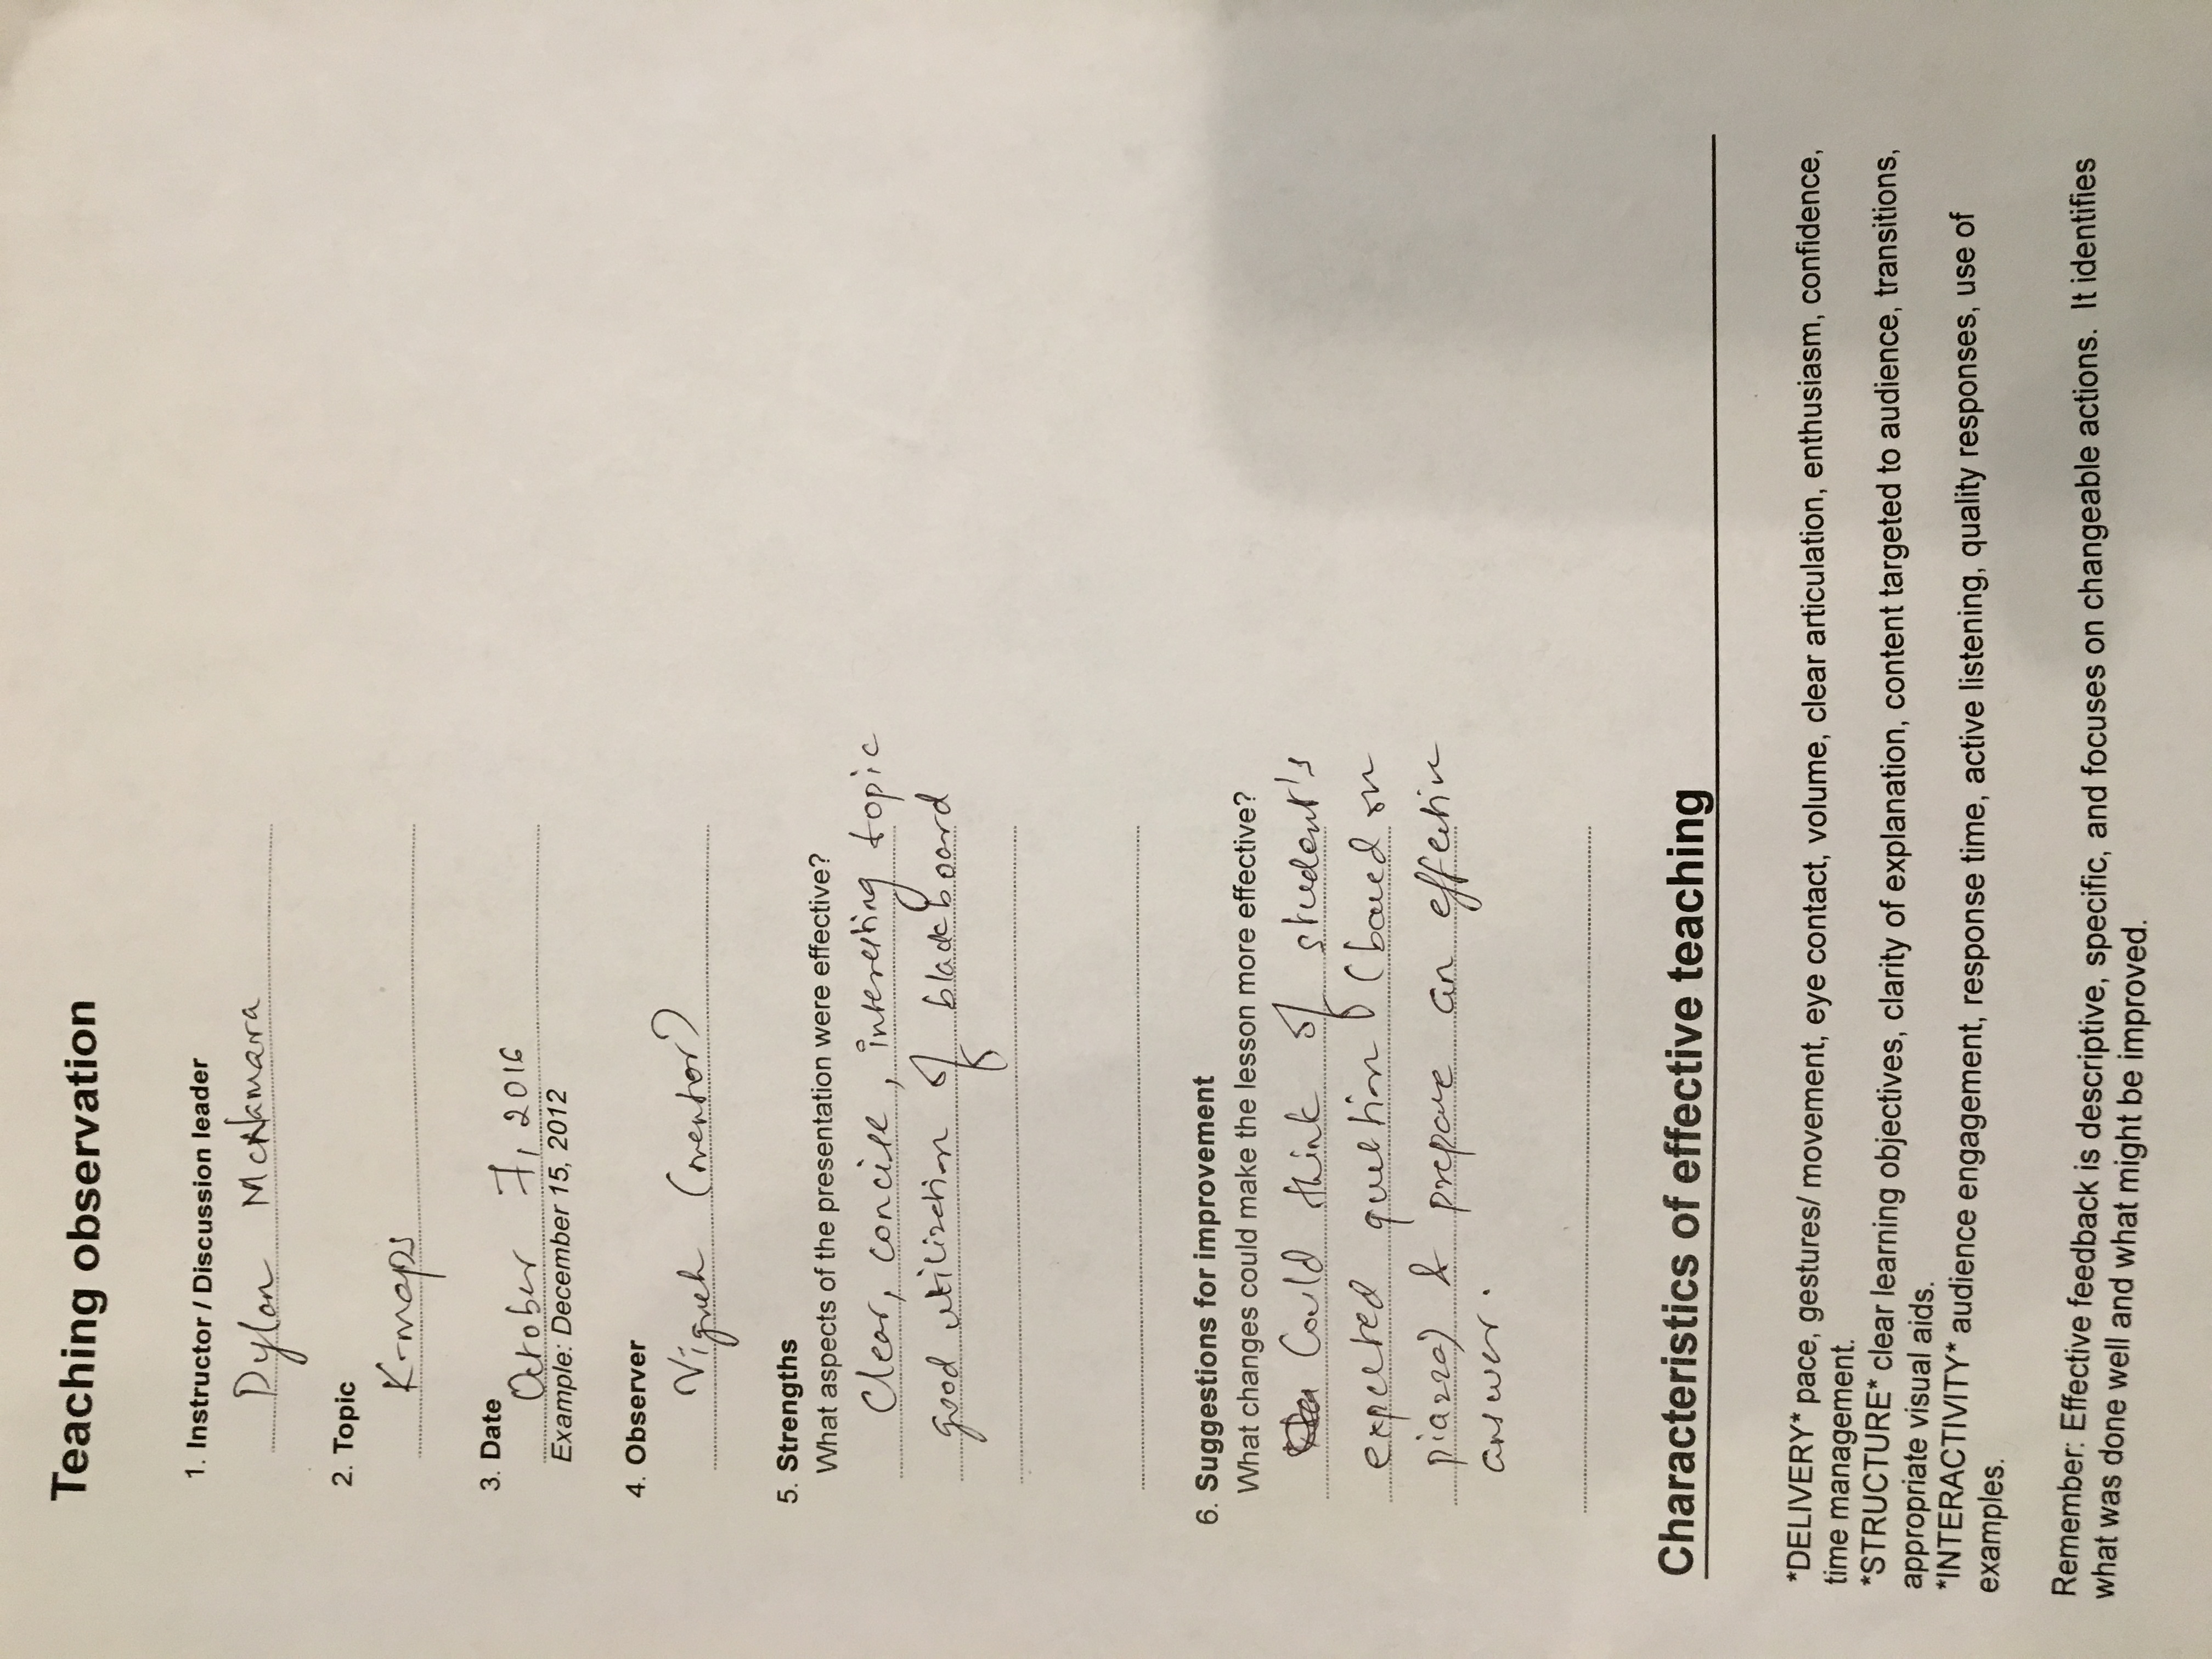 Teaching observation
1. Instructor / Discussion leader
Dylan McNamara
2. Topic
K-maps
3. Date
October 7, 2016
Example: December 15, 2012
4. Observer
Vignesh (mentor?)
5. Strengths
What aspects of the presentation were effective?
Clear, concise, interesting topic
good utilization of blackboard
6. Suggestions for improvement
What changes could make the lesson more effective?
Could think of student's
expected question (based on
piazza) & prepare an effective
answer.
Characteristics of effective teaching
*DELIVERY* pace, gestures/ movement, eye contact, volume, clear articulation, enthusiasm, confidence,
time management.
*STRUCTURE* clear learning objectives, clarity of explanation, content targeted to audience, transitions,
appropriate visual aids.
*INTERACTIVITY* audience engagement, response time, active listening, quality responses, use of
examples.
Remember: Effective feedback is descriptive, specific, and focuses on changeable actions. It identifies
what was done well and what might be improved.